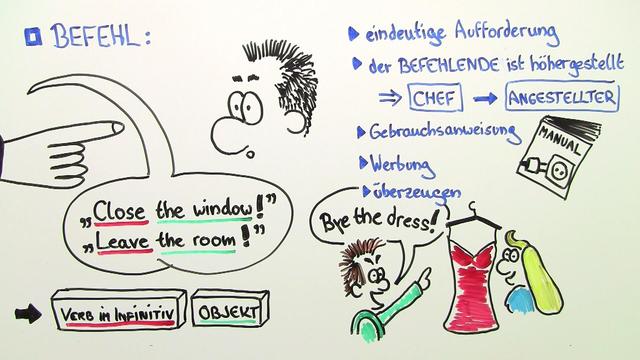 BEFEHL:
„Close the window!”
„Leave the room!”
VERB IM INFINITIV
OBJEKT
eindeutige Aufforderung
der BEFEHLENDE ist höhergestellt
⇒ CHEF → ANGESTELLTER
Gebrauchsanweisung
MANUAL
Werbung
überzeugen
Bye the dress!